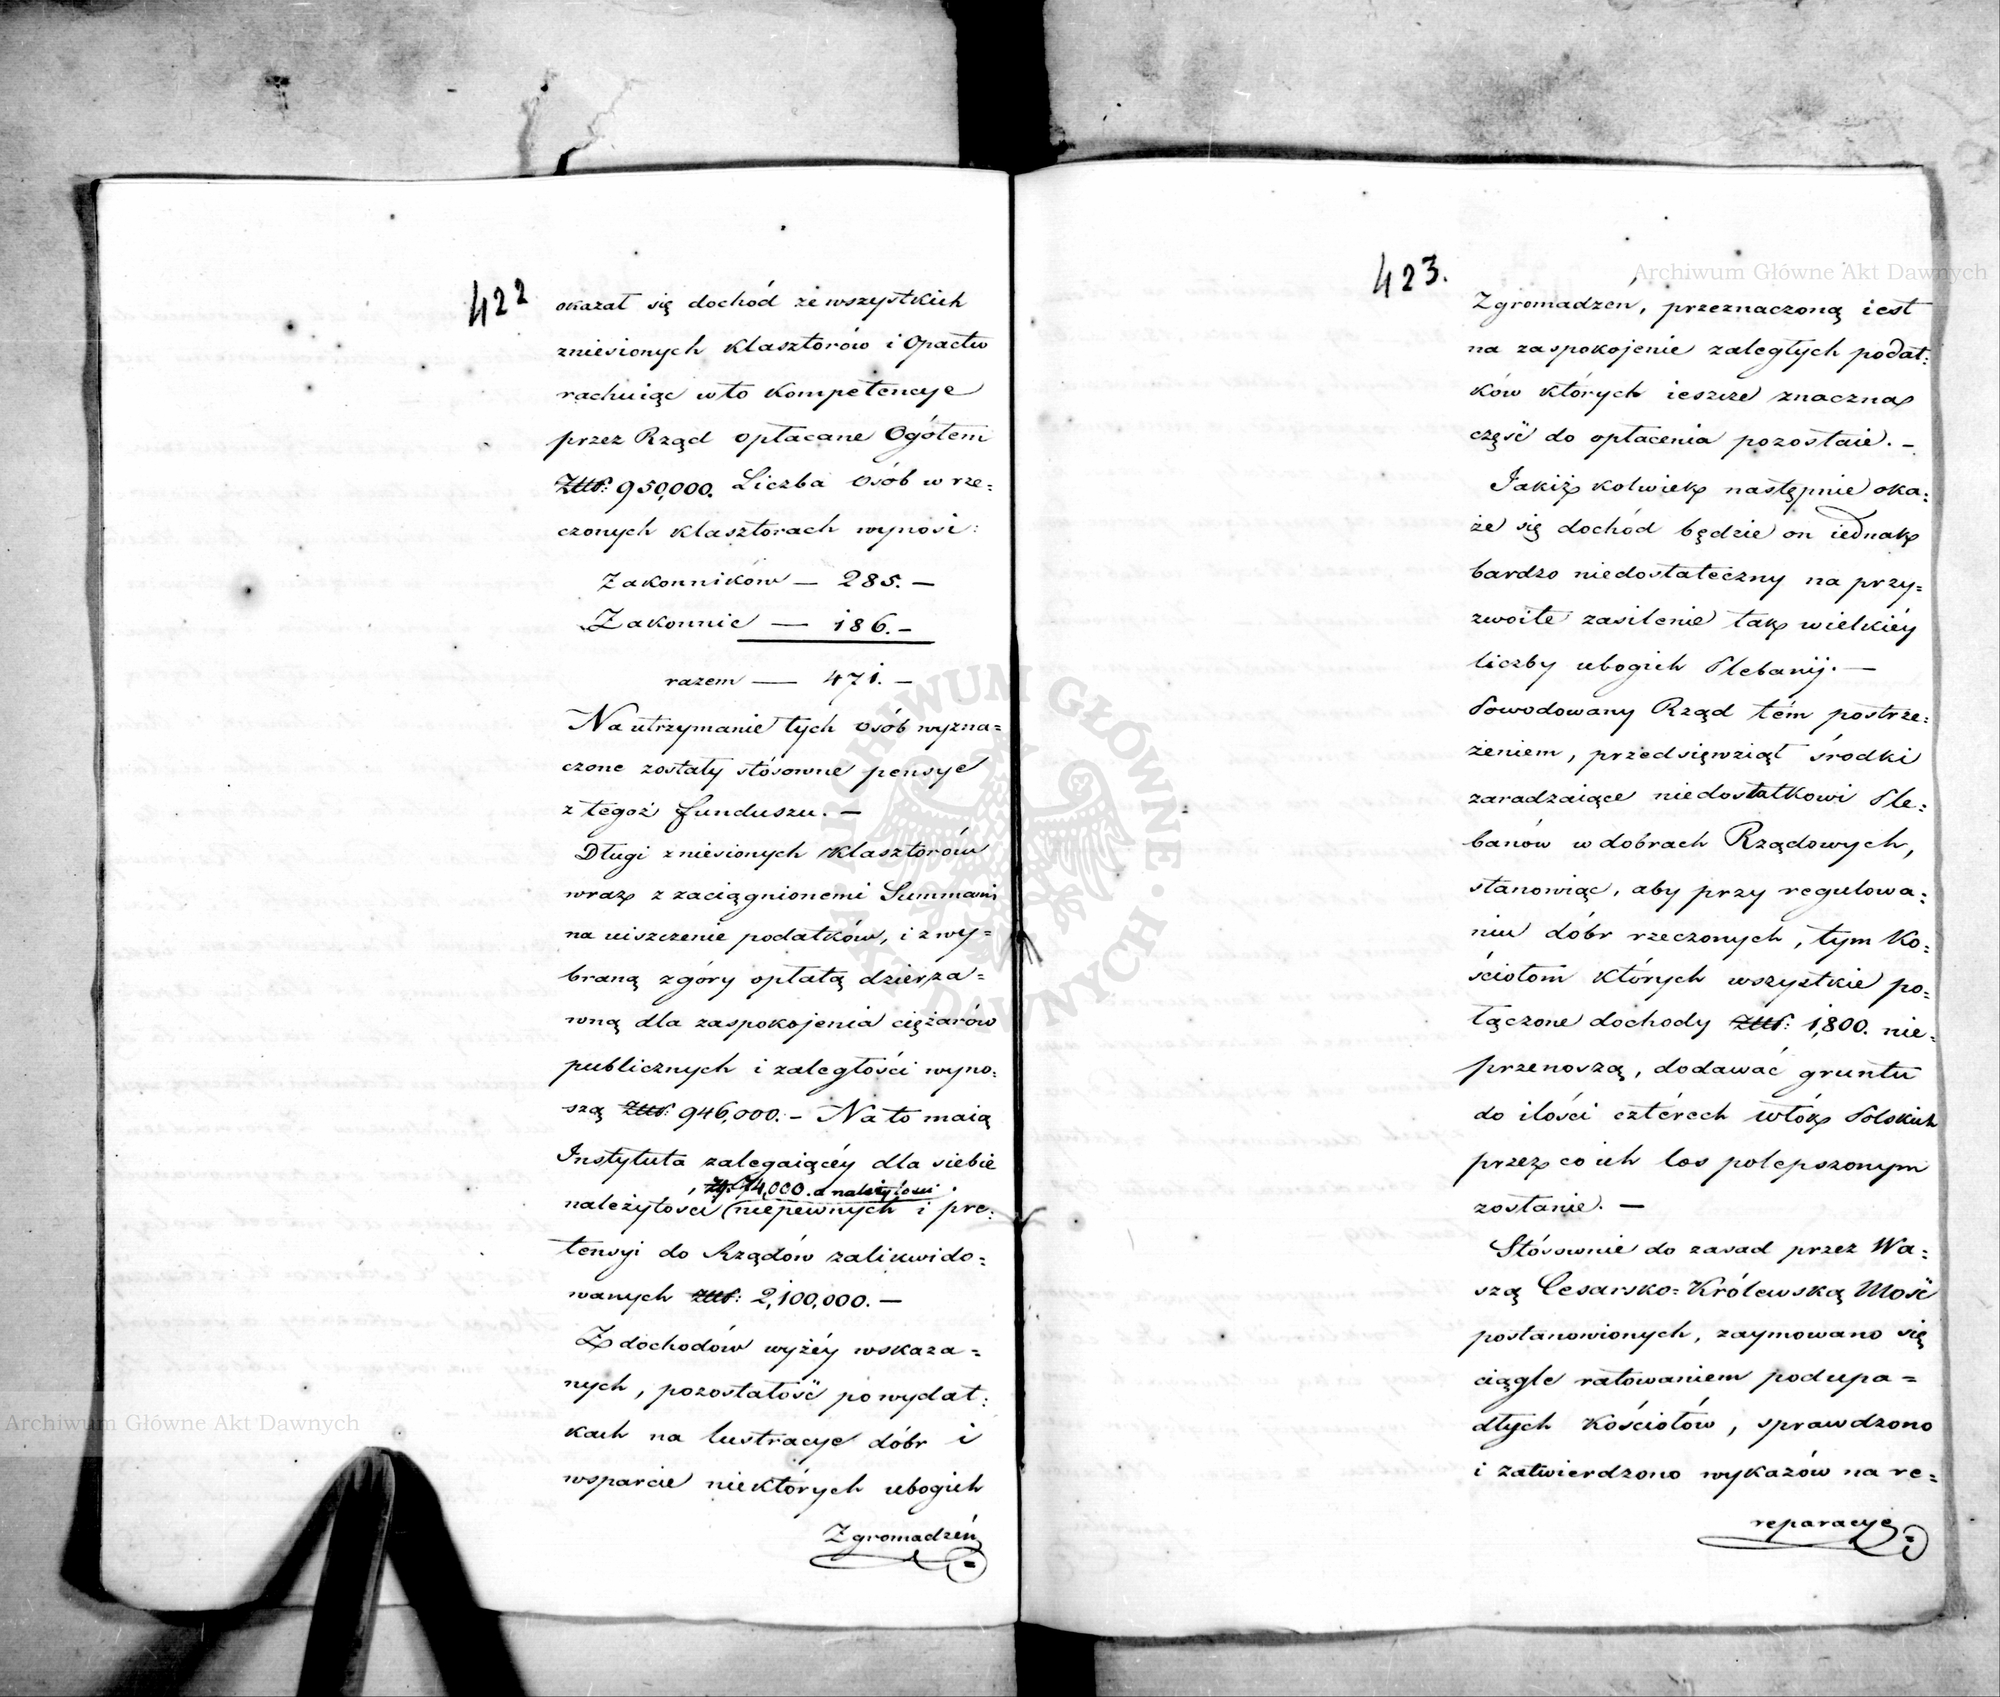 422
okazał się dochód ze wszystkich
zniesionych Klasztorów i Opactw
rachuiąc w to Kompetencye
przez Rząd opłacane Ogółem
Złtł: 950,000. Liczba osób w rze=
czonych klasztorach wynosi:
Zakonników — 285. —
Zakonnic — 186. —
razem — 471. —
Na utrzymanie tych osób wyzna=
czone zostały stósowne pensye
z tegoż funduszu. —
Długi zniesionych Klasztorów
wraz z zaciągnionemi Summami
na uiszczenie podatków, i z wy=
braną z góry opłatą dzierza=
wną dla zaspokojenia ciężarów
publicznych i zaległości wyno=
szą Złtł: 946,000. — Na to maią
Instytuta zalegaiącéy dla siebie
zł: 74,000. a należytości
należytości niepewnych i pre=
tensyi do Rządów zalikwido=
wanych złtł: 2,100,000. —
Z dochodów wyżéy wskaza=
nych, pozostałość po wydat=
kach na lustracye dóbr i
wsparcie niektórych ubogich
Zgromadzeń
423.
Zgromadzeń, przeznaczoną iest
na zaspokojenie zaległych podat=
ków których ieszcze znaczna
część do opłacenia pozostaie. —
Jakiż kolwiek następnie oka=
że się dochód będzie on iednak
bardzo niedostateczny na przy=
zwoite zasilenie tak wielkiéy
liczby ubogich Plebanij. —
Powodowany Rząd tém postrze=
żeniem, przedsięwziął środki
zaradzaiące niedostatkowi Ple=
banów w dobrach Rządowych,
stanowiąc, aby przy regulowa=
niu dóbr rzeczonych, tym Ko=
ściołom których wszystkie po=
łączone dochody złtł: 1,800. nie=
przenoszą, dodawać gruntu
do ilości cztérech włók Polskich
przez co ich los polepszonym
zostanie. —
Stósownie do zasad przez Wa=
szą Cesarsko=Królewską Mość
postanowionych, zaymowano się
ciągle ratowaniem podupa=
dłych Kościołów, sprawdzono
i zatwierdzono wykazów na re=
reparacye
Archiwum Główne Akt Dawnych
Archiwum Główne Akt Dawnych
ARCHIWUM GŁÓWNE AKT DAWNYCH